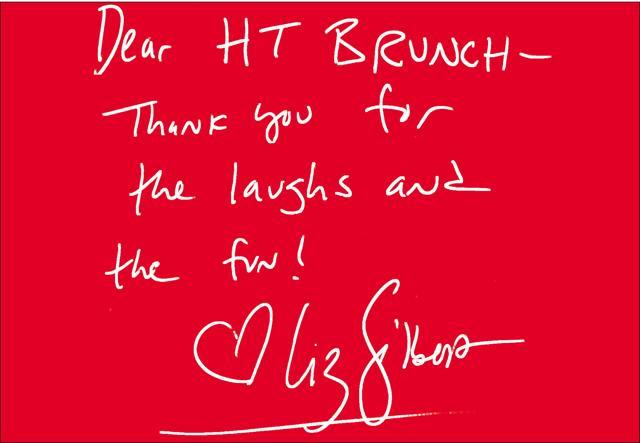 Dear HT BRUNCH–
Thank you for
the laughs and
the fun!
♡ Liz Gilbert